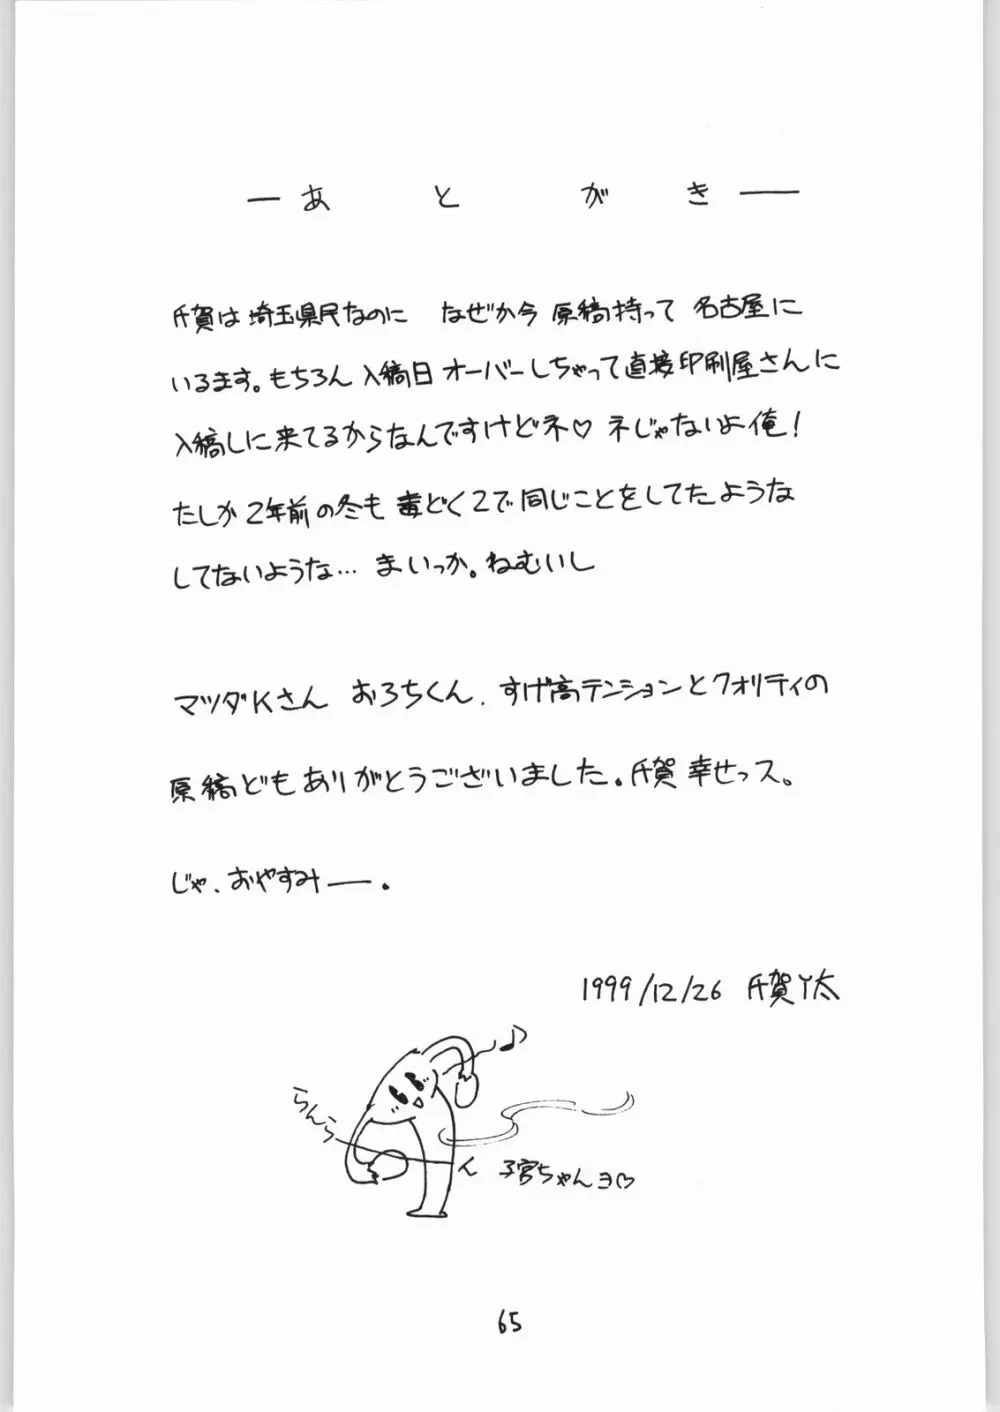 ― あ と が き ―
千賀は埼玉県民なのに なぜか今 原稿持って 名古屋に
いるます。もちろん 入稿日 オーバーしちゃって直接印刷屋さんに
入稿しに来てるからなんですけどネ♡ ネじゃないよ俺!
たしか2年前の冬も 毒どく2で同じことをしてたような
してないような… まいっか。ねむいし
マツダKさん おろちくん、すげ高テンションとクオリティの
原稿どもありがとうございました。千賀 幸せっス。
じゃ、おやすみ―。
1999/12/26 千賀 太
♪
らんらん
子宮ちゃんヨ♡
65